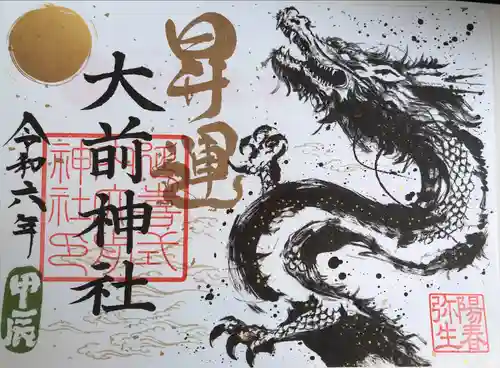 昇運
大前神社
令和六年
甲辰
陽春
弥生